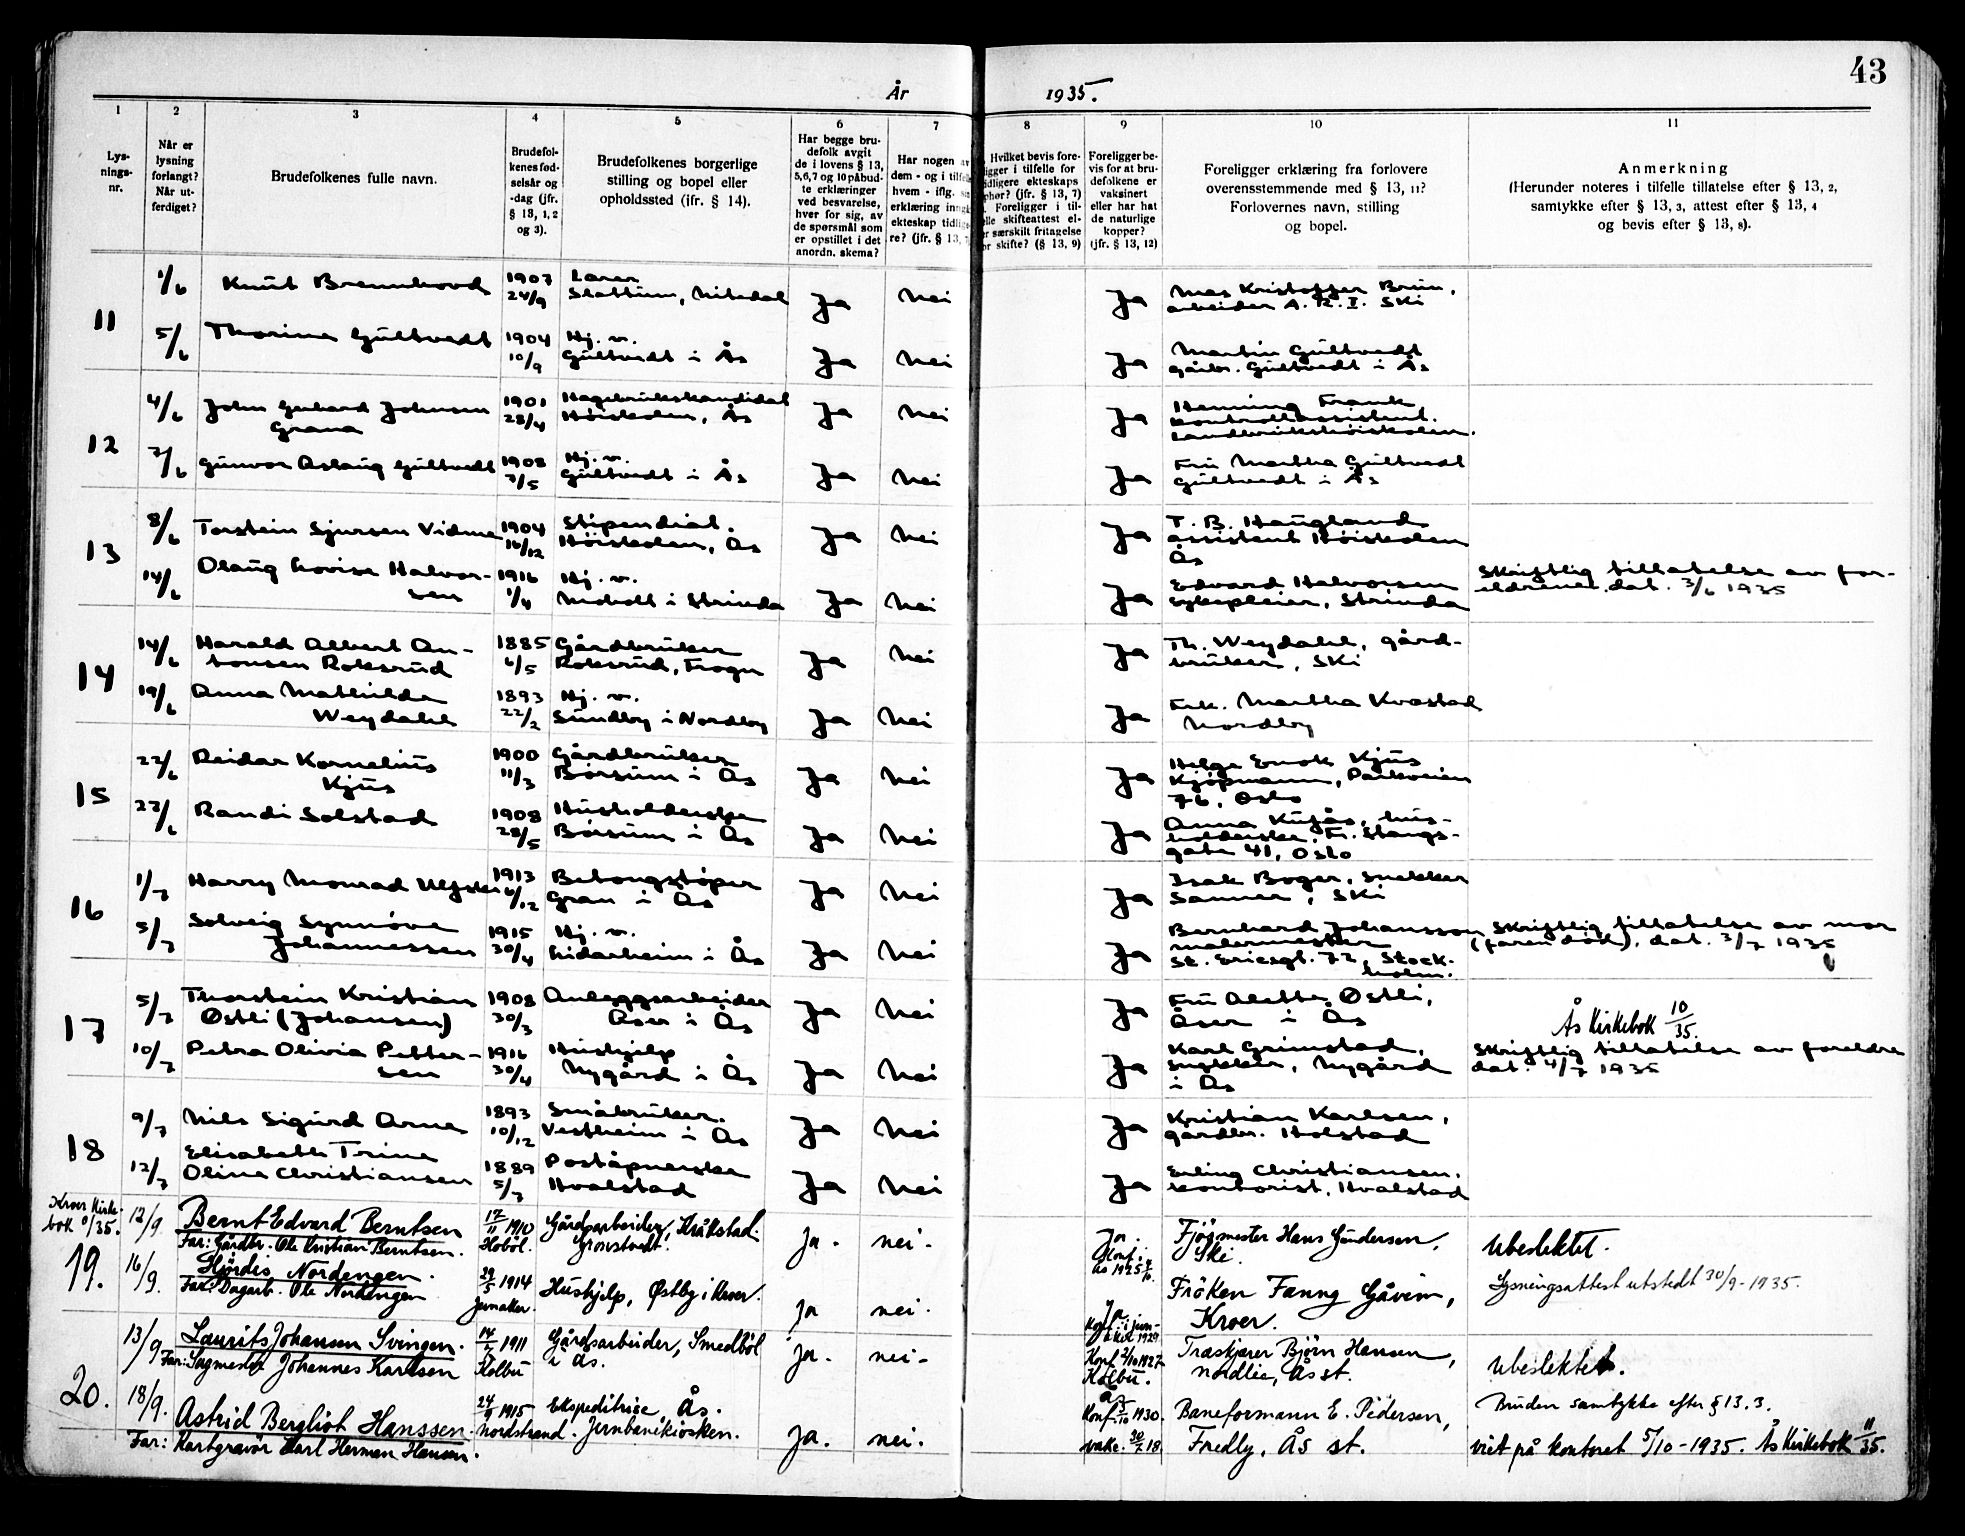 43
År 1935.
1 2 3 4 5 6 7 8 9 10 11
Lys-
nings-
nr.
Når er
lysning
forlangt?
Når ut-
ferdiget?
Brudefolkenes fulle navn.
Brudefol-
kenes fød-
selsår og
-dag (jfr.
§ 13, 1, 2
og 3).
Brudefolkenes borgerlige
stilling og bopel eller
opholdssted (ifr. § 14).
Har begge bru-
defolk avgit
de i lovens § 13,
5,6,7 og 10 påbud-
te erklæringer
ved besvarelse,
hver for sig, av
de spørsmål som
er opstillet i det
anordn. skema?
Har nogen av
dem - og i tilfel
hvem - iflg.
erklæring inng
ekteskap tidlig
re? (jfr. § 13, 7
Hvilket bevis fore-
ligger i tilfelle for
tidligere ekteskaps
ophør? (jfr. § 13, 7)
Foreligger i til-
elle skifteattest el-
er særskilt fritagelse
or skifte? (§ 13, 9)
Foreligger be-
vis for at bru-
defolkene er
vaksinert
eller har hat
de naturlige
kopper?
(jfr. § 13, 12)
Foreligger erklæring fra forlovere
overensstemmende med § 13, 11?
Forlovernes navn, stilling
og bopel.
Anmerkning
(Herunder noteres i tilfelle tillatelse efter § 13, 2,
samtykke efter § 13, 3, attest efter § 13, 4
og bevis efter § 13, 8).
11
1/6 Knut Brennhovd 1907 24/9 Lærer
Slattum, Nitedal Ja Nei Ja Kristoffer Bruu,
arbeider A. R. I. Ski
5/6 Thorine Gultvedt 1904 10/9 Hj. v.
Gultvedt i Ås Ja Nei Ja Martin Gultvedt
gårbr. Gultvedt i Ås
12
4/6 John Gerhard Johnsen
Grana 1901 28/4 Hagebrukskandidat
Høiskolen, Ås Ja Nei Ja Henning Frank
kontrollassistent.
Landbrukshøiskolen.
7/6 Gunvor Aslaug Gultvedt 1908 7/5 Hj. v.
Gultvedt i Ås Ja Nei Ja Fru Martha Gultvedt
Gultvedt i Ås
13
8/6 Torstein Sjursen Vidme 1904 16/12 Stipendiat.
Høiskolen, Ås Ja Nei Ja T. B. Haugland
assistent Høiskolen
Ås
14/6 Olaug Lovise Halvor-
sen 1916 1/4 Hj. v.
Moholt i Strinda Ja Nei Ja Edvard Halvorsen
sykepleier, Strinda
Skriftlig tillatelse av for-
eldrene. dat. 3/6 1935
14
14/6 Harald Albert An-
tonsen Roksrud 1885 6/5 Gårdbruker
Roksrud, Frogn Ja Nei Ja Th. Weydahl, gård-
bruker, Ski
19/6 Anna Mathilde
Weydahl 1893 22/2 Hj. v.
Sundby i Nordby Ja Nei Ja Frk. Martha Kvæstad
Nordby
15
22/6 Reidar Kornelius
Kjus 1900 11/3 Gårdbruker
Børsum i Ås Ja Nei Ja Helge Kjus
Kjøpmann, Parkveien
76, Oslo
22/6 Randi Solstad 1908 28/5 Husholderske
Børsum i Ås Ja Nei Ja Anna hus-
holderske, Fr. Stangs-
gate 41, Oslo
16
1/7 Harry Monrad 1913 6/12 Betongstøper
Gran i Ås Ja Nei Ja Isak Boger, snekker
Sanner, Ski
5/7 Solveig Synnøve
Johannessen 1915 30/4 Hj. v.
Lidarheim i Ås Ja Nei Ja Bernhard Johansson
malermester
St. Eriksgt. 72, Stock-
holm.
Skriftlig tillatelse av mor
(faren død), dat. 3/7 1935
17
5/7 Thorstein Kristian
Østli (Johansen) 1908 30/3 Anleggsarbeider
Åser i Ås Ja Nei Ja Fru Alette Østli,
Åser i Ås
Ås Kirkebok 10/35.
10/7 Petra Olivia Petter-
sen 1916 30/4 Hushjelp
Nygård i Ås Ja Nei Ja Karl Grimstad,
snekker, Nygård
i Ås
Skriftlig tillatelse av foreldre
dat. 4/7 1935
18
9/7 Nils Sigurd Arne 1893 10/12 Småbruker.
Vestheim i Ås Ja Nei Ja Kristian Karlsen,
gårdbr. Holstad
12/7 Elisabeth Trine
Oline Christiansen 1889 5/7 Poståpnerske
Hvalstad Ja Nei Ja Erling Christiansen.
kontorist, Hvalstad
Kroer Kirke-
bok 9/35.
19.
12/9 Bernt Edvard Berntsen
Far: Gårdbr. Ole Kristian Berntsen. 17/11 1910
Hobøl. Gårdsarbeider, Kråkstad.
Grønstvedt. Ja. nei. Ja.
Konf. i
Ås 1925 4/10. Fjøsmester Hans Gundersen,
Ski. Ubeslektet.
16/9. Hjørdis Nordengen.
Far: Dagarb. Ole Nordengen 29/5 1914
Jevnaker. Hushjelp, Østby i Kroer. Ja nei. Ja
Konf. i Jevn-
aker 1929 Frøken Fanny Gåvim,
Kroer.
Lysningsattest utstedt 30/9-1935.
20.
13/9 Laurits Johansen Svingen.
Far: Sagmester Johannes Karlsen 14/7 1911
Kolbu Gårdsarbeider, Smedbøl
i Ås. Ja. nei. Konf. 2/10 1927
Kolbu. Træskjærer Bjørn Hansen,
Nordlie, Ås st. Ubeslektet.
18/9. Astrid Bergliot Hanssen.
Far: Kartgravør Karl Herman Hansen. 24/9 1915
Nordstrand. Ekspeditrise Ås.
Jernbanekiosken. Ja. nei. Ås
Konf. 5/10 1930.
vakc. 30/7 18 Baneformann E. Pedersen,
Fredly, Ås st.
Bruden samtykke efter § 13. 3.
viet på kontoret 5/10-1935. Ås Kirkebok 11/35.